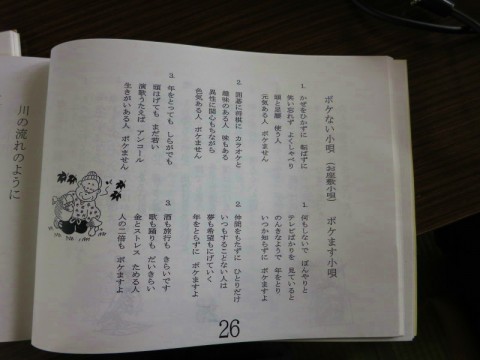 ボケない小唄(お座敷小唄)
1. かぜをひかずに 転ばずに
笑い忘れず よくしゃべり
頭と足腰 使う人
元気ある人 ボケません
2. 囲碁に将棋に カラオケと
趣味のある人 味もある
異性に関心もちながら
色気ある人 ボケません
3. 年をとっても しらがでも
頭はげても まだ若い
演歌うたえば アンコール
生きがいある人 ボケません
ボケます小唄
1. 何もしないで ぼんやりと
テレビばかりを 見ていると
のんきなようで 年をとり
いつか知らずに ボケますよ
2. 仲間をもたずに ひとりだけ
いつもすることない人は
夢も希望もにげていく
年をとらずに ボケますよ
3. 酒も旅行も きらいです
歌も踊りも だいきらい
金とストレス ためる人
人の二倍も ボケますよ
26
川の流れのように